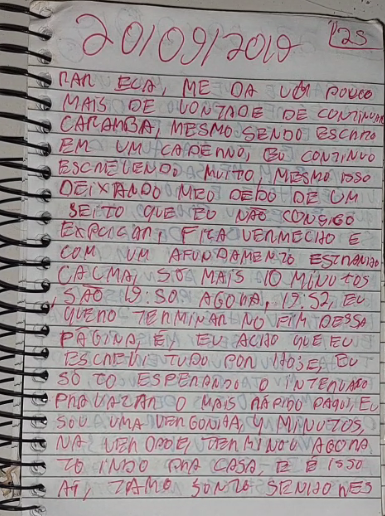 20/09/2019
PAR ECA, ME DA UM POUCO
MAIS DE VONTADE DE CONTINUAR
CARAMBA, MESMO SENDO ESCRITO
EM UM CADERNO, EU CONTINUO
ESCREVENDO MUITO, MESMO ISSO
DEIXANDO MEU DEDO DE UM
SEITO QUE EU NÃO CONSIGO
EXPLICAR, FICA VERMELHO E
COM UM AFUNDAMENTO ESTRANHO
CALMA, SO MAIS 10 MINUTOS
, SÃO 19:50 AGORA, 19:52, EU
QUERO TERMINAR NO FIM DESSA
PÁGINA, É, EU ACHO QUE EU
ESCREVI TUDO POR HOJE, EU
SÓ TO ESPERANDO O INTERVALO
PRA VAZAR O MAIS RÁPIDO DAQUI, EU
SOU UMA VERGONHA, 4 MINUTOS,
NA VERDADE, TERMINOU AGORA
TO INDO PRA CASA, E É ISSO
AI, TAMO JUNTO SENHORES